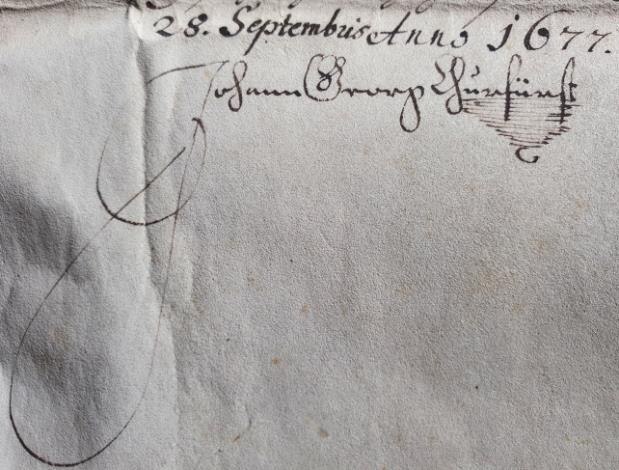 28. Septembris Anno 1677.
Johann Georg Churfürst